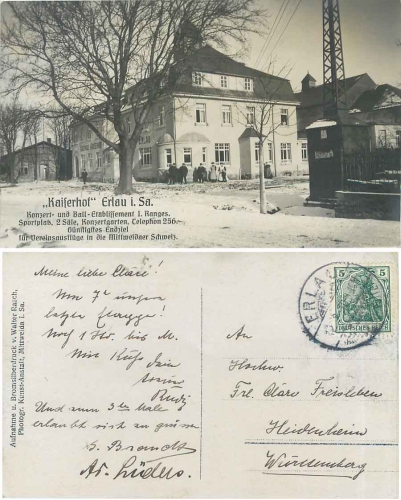 „Kaiserhof" Erlau i. Sa.
Konzert- und Ball-Etablissement I. Ranges.
Sportplatz, 2 Säle, Konzertgarten, Telephon 256.
Günstigstes Endziel
für Vereinsausflüge in die Mittweidaer Schweiz.
Aufnahme u. Bromsilberdruck v. Walter Rasch,
Photogr. Kunst-Anstalt, Mittweida i. Sa.
Meine liebe Cläre!
Vom 7t unsere
letzte Etappe!
Noch 1 Str. bis M.
Mit Kuß Dein
Rudi
Und zum 3ten Male
erlaubt sich zu grüssen
G. Brandt
Ad. Lüders.
An
Frl. Cläre Freisleben
Heidenheim
Württemberg
ERLAU
5 5